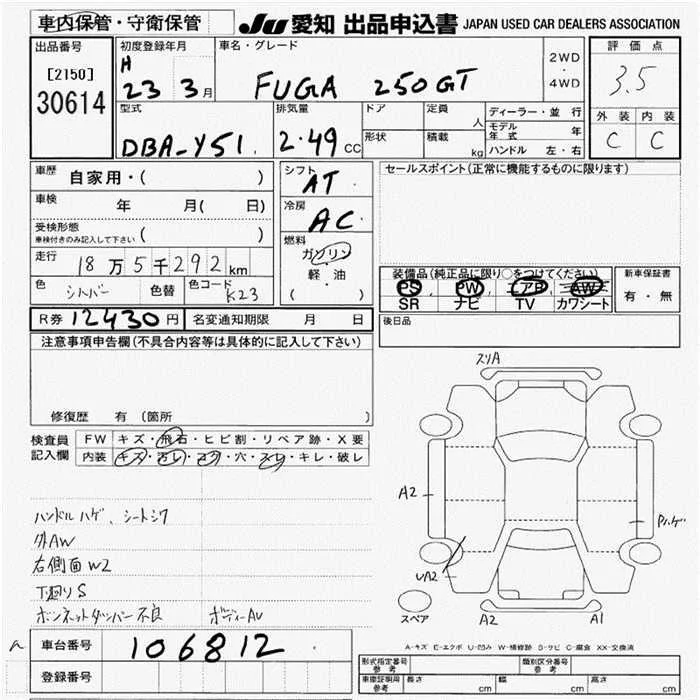 車内保管・守衛保管
JU 愛知 出品申込書 JAPAN USED CAR DEALERS ASSOCIATION
出品番号
[2150]
30614
初度登録年月
H
23 3月
車名・グレード
FUGA 250GT
2WD
・
4WD
評価点
3.5
外装 内装
C C
型式
DBA-Y51
排気量
2.49 CC
ドア
形状
定員
人
積載
kg
ディーラー・並行
モデル年式 年
ハンドル 左・右
車歴 自家用・( )
車検 年 月( 日)
受検形態
車検付きのみ記入して下さい ( )
走行 18万5千292km
色 シルバー 色替 色コード K23
シフト
AT
冷房
AC
燃料
ガソリン
軽・油
( ・ )
セールスポイント(正常に機能するものに限ります)
装備品(純正品に限り○をつけてください)
PS PW エアB AW
SR ナビ TV カワシート
新車保証書
有・無
R券 12430円 名変通知期限 月 日
後日品
注意事項申告欄(不具合内容等は具体的に記入して下さい)
修復歴 有(箇所 )
検査員
記入欄
FW キズ・飛石・ヒビ割・リペア跡・X要
内装 キズ・汚レ・コゲ・穴・スレ・キレ・破レ
ハンドルハゲ、シートシワ
外AW
右側面W2
下廻りS
ボンネットダンパー不良 ボディーAU
スリA
A2
Pハゲ
UA2
スペア
A2
A1
A-キズ E-エクボ U-凹み W-補修跡 S-サビ C-腐食 XX-交換済
車台番号 106812
登録番号
形式指定番号
参考
類別区分番号
参考
車庫証明用
参考
長さ cm 幅 cm 高さ cm